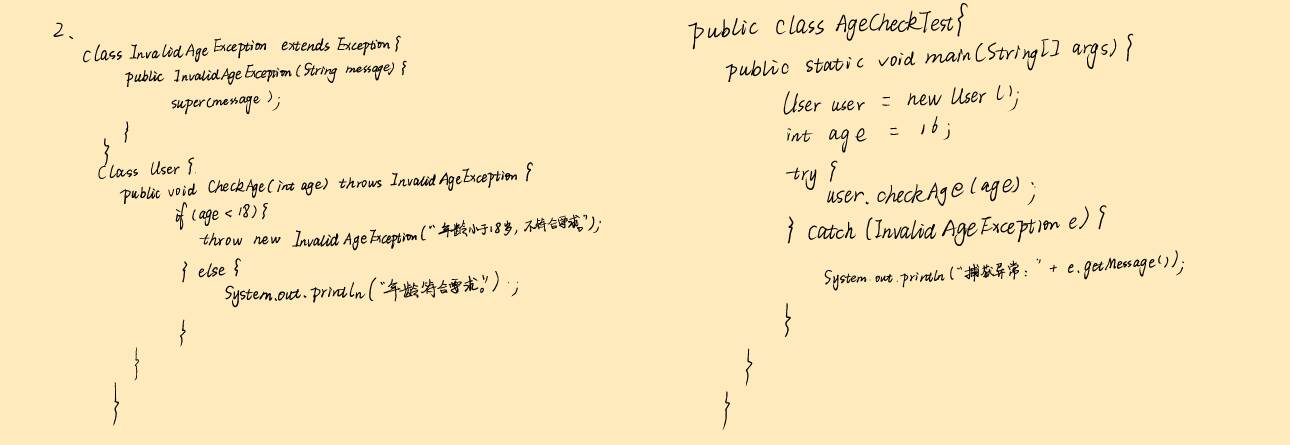 2、
class InvalidAgeException extends Exception {
public InvalidAgeException(String message) {
super(message);
}
}
class User {
public void CheckAge(int age) throws InvalidAgeException {
if (age < 18) {
throw new InvalidAgeException("年龄小于18岁，不符合要求。");
} else {
System.out.println("年龄符合要求。");
}
}
}
public class AgeCheckTest{
public static void main(String[] args) {
User user = new User();
int age = 16;
try {
user.checkAge(age);
} catch (InvalidAgeException e) {
System.out.println("捕获异常：" + e.getMessage());
}
}
}